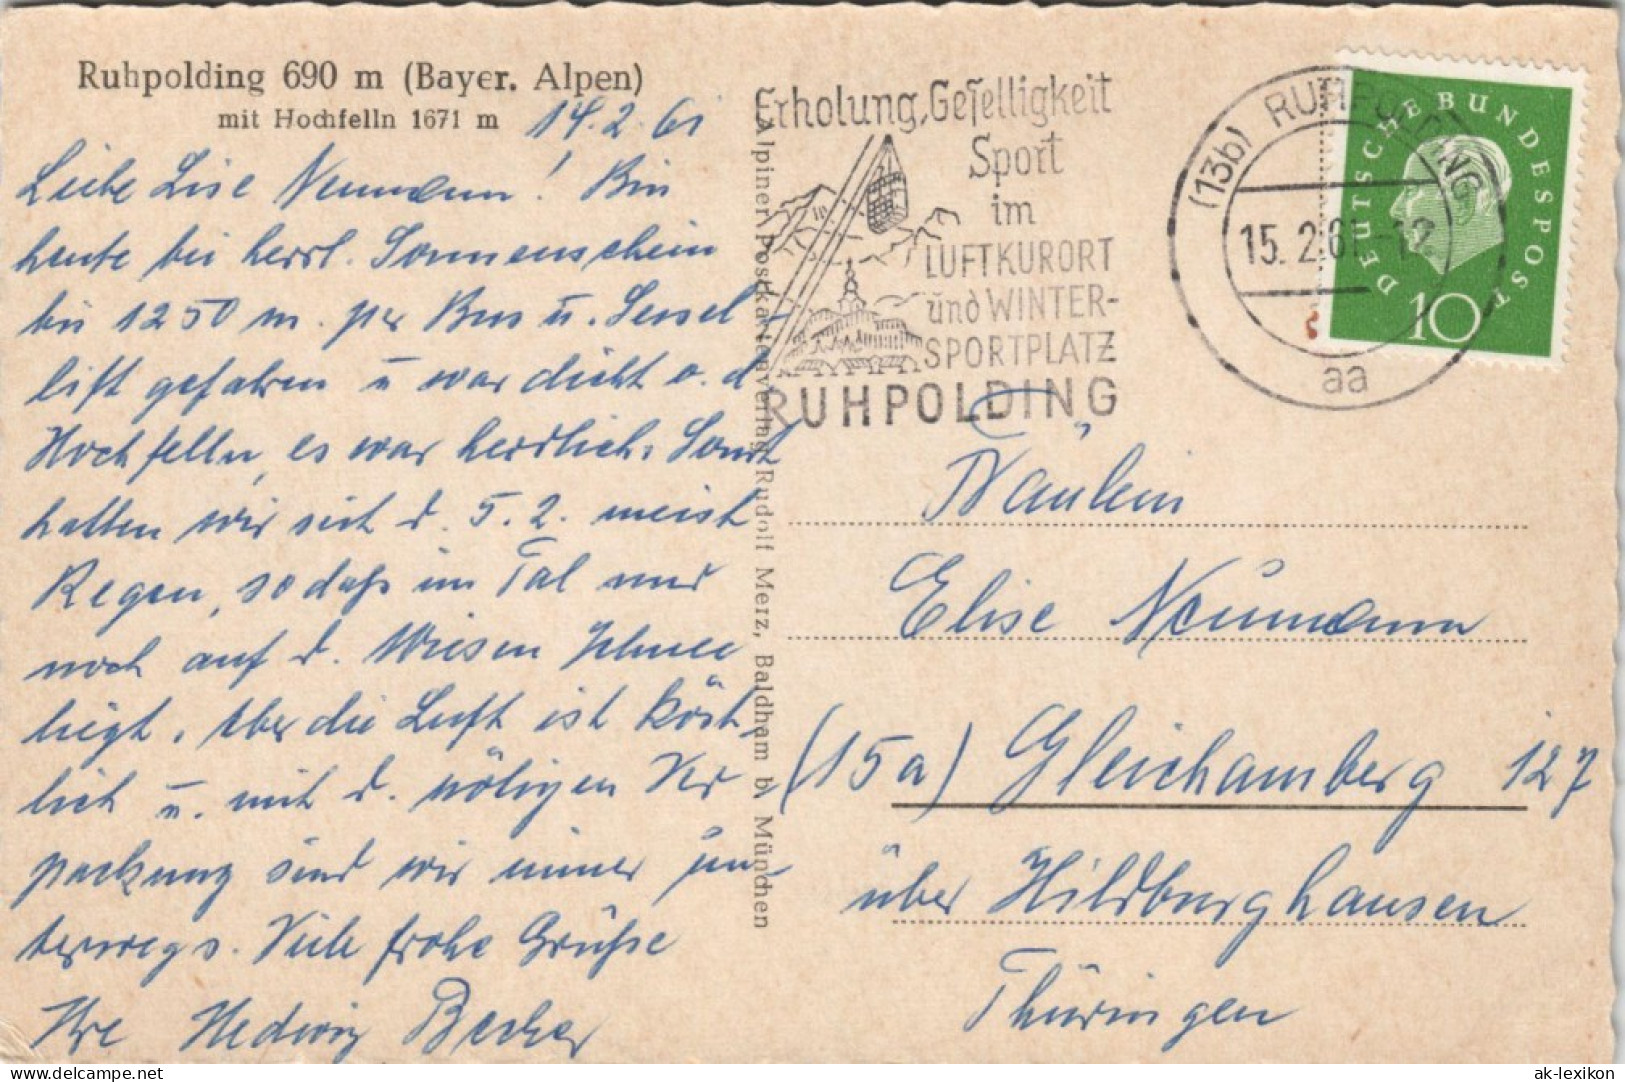 Ruhpolding 690 m (Bayer. Alpen)
mit Hochfelln 1671 m
14.2.61
Liebe Lise Neumann! Bin
heute bei herrl. Sonnenschein
bis 1250 m. per Bus u. Sessel-
lift gefahren u war dicht a. d.
Hochfelln, es war herrlich. Sonst
hatten wir seit d. 5.2. meist
Regen, so daß im Tal nur
noch auf d. Wiesen Schnee
liegt. Aber die Luft ist köst-
lich u. mit d. nötigen Ver
packung sind wir immer un-
terwegs. Viele frohe Grüße
Ihre Hedwig Becker
Alpiner Postkartenverlag Rudolf Merz, Baldham b. München
Erholung, Geselligkeit
Sport
im
LUFTKURORT
und WINTER-
SPORTPLATZ
RUHPOLDING
(13b) RUHPOLDING
15. 2.61-12
aa
DEUTSCHE BUNDESPOST
10
Fräulein
Elise Neumann
(15a) Gleichamberg 127
über Hildburghausen
Thüringen
delcampe.net
ak-lexikon